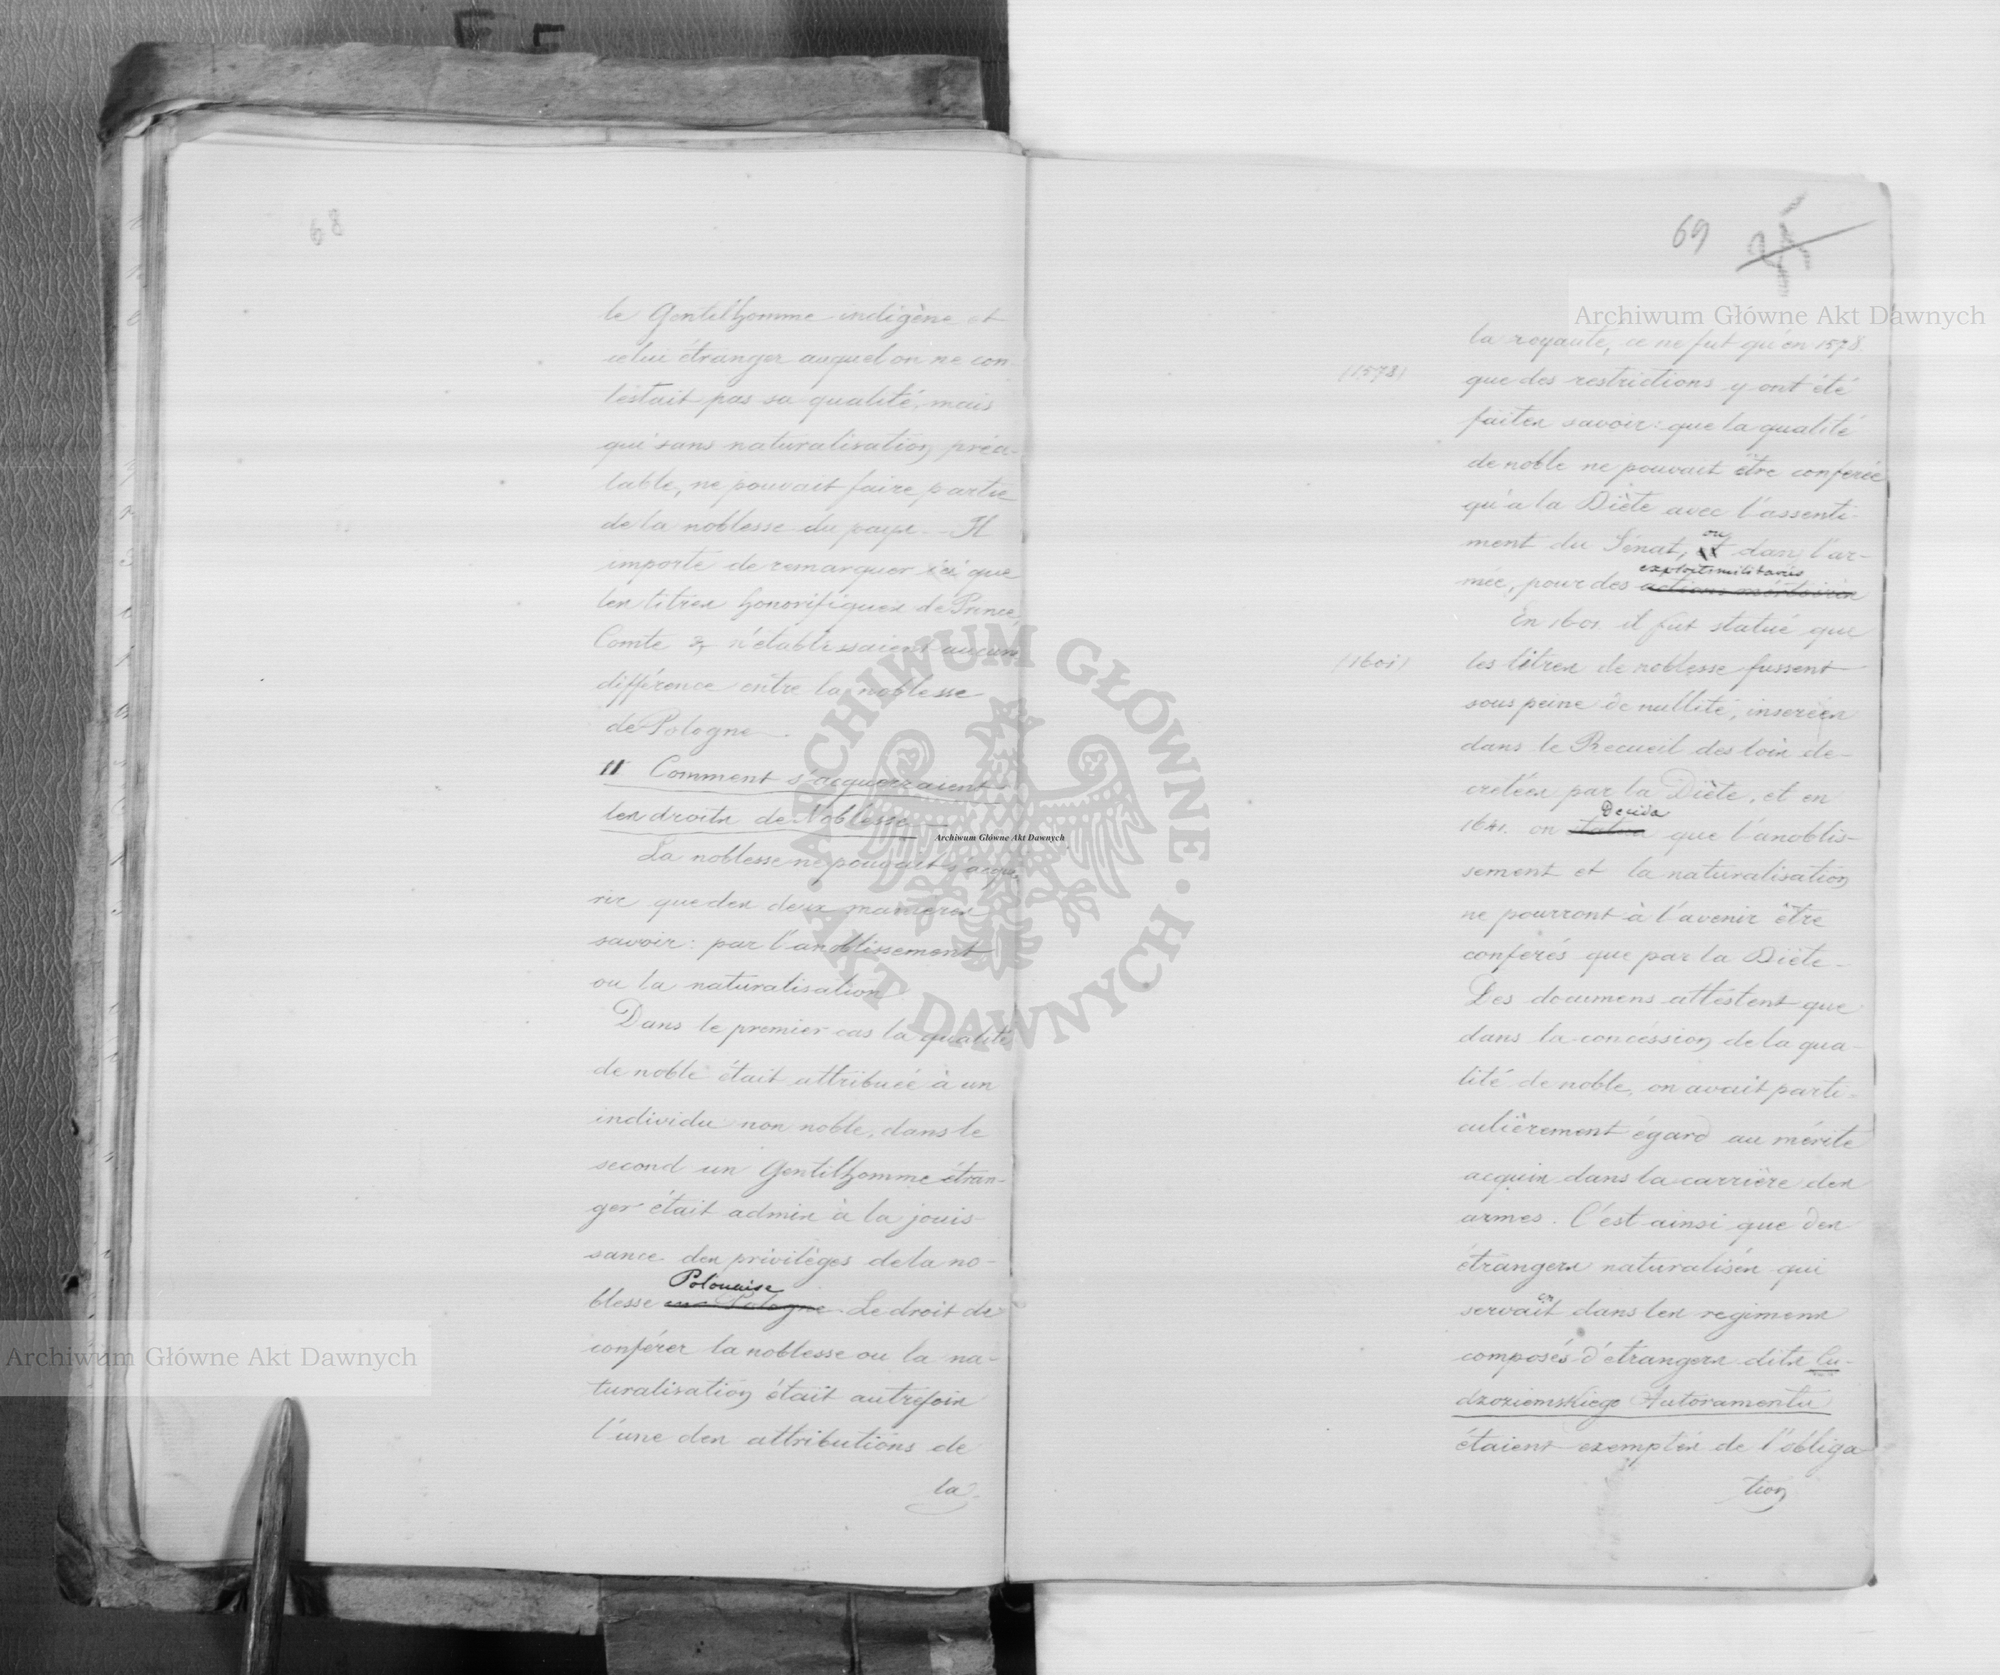 68
le Gentilhomme indigène et
celui étranger auquel on ne con
testait pas sa qualité, mais
qui sans naturalisation préa-
lable, ne pouvait faire partie
de la noblesse du pays. - Il
importe de remarquer ici que
les titres honorifiques de Prince,
Comte & n'établissaient aucune
différence entre la noblesse
de Pologne.
II Comment s'acquerraient
les droits de Noblesse
La noblesse ne pouvait s'acqué-
rir que des deux manieres
savoir: par l'anoblissement
ou la naturalisation
Dans le premier cas la qualité
de noble était attribuée à un
individu non noble, dans le
second un Gentilhomme étran-
ger était admis à la jouis-
sance des privilèges de la no-
Polonaise
blesse en Pologne Le droit de
conférer la noblesse ou la na-
turalisation était autrefois
l'une des attributions de
la
69
la royauté, ce ne fut qu'en 1578.
(1578)
que des restrictions y ont été
faites savoir: que la qualité
de noble ne pouvait être conferée
qu'a la Diète avec l'assenti-
ou
ment du Sénat, et dans l'ar-
exploits militaires
mée, pour des actions méritoires
En 1601. il fut statué que
(1601)
les titres de noblesse fussent
sous peine de nullité, inserées
dans le Recueil des loix de-
cretées par la Diète, et en
Decida
1641. on statua que l'anoblis-
sement et la naturalisation
ne pourront à l'avenir être
conferés que par la Diète-
Les documens attestent que
dans la concéssion de la qua-
lité de noble, on avait parti-
culièrement égard au mérite
acquis dans la carrière des
armes. C'est ainsi que des
étrangers naturalisés qui
en
servait dans les regimens
composés d'etrangers dits Cu-
dzoziemskiego Autoramentu
étaient exemptés de l'obliga-
tion
Archiwum Główne Akt Dawnych
Archiwum Główne Akt Dawnych
Archiwum Główne Akt Dawnych
ARCHIWUM GŁÓWNE · AKT DAWNYCH ·